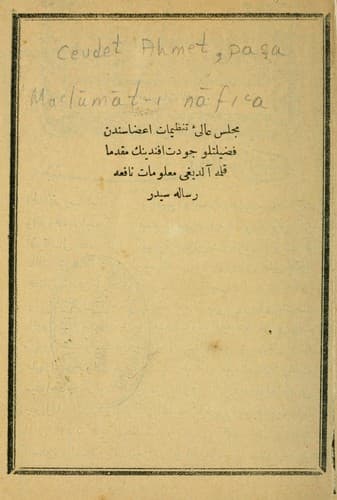 Cevdet Ahmet, paşa
Maᶜlūmāt-ı nāfıᶜa
مجلس عالئ تنظيمات اعضاسندن
فضيلتلو جودت افندينك مقدما
قلمه آلديغى معلومات نافعه
رساله سيدر